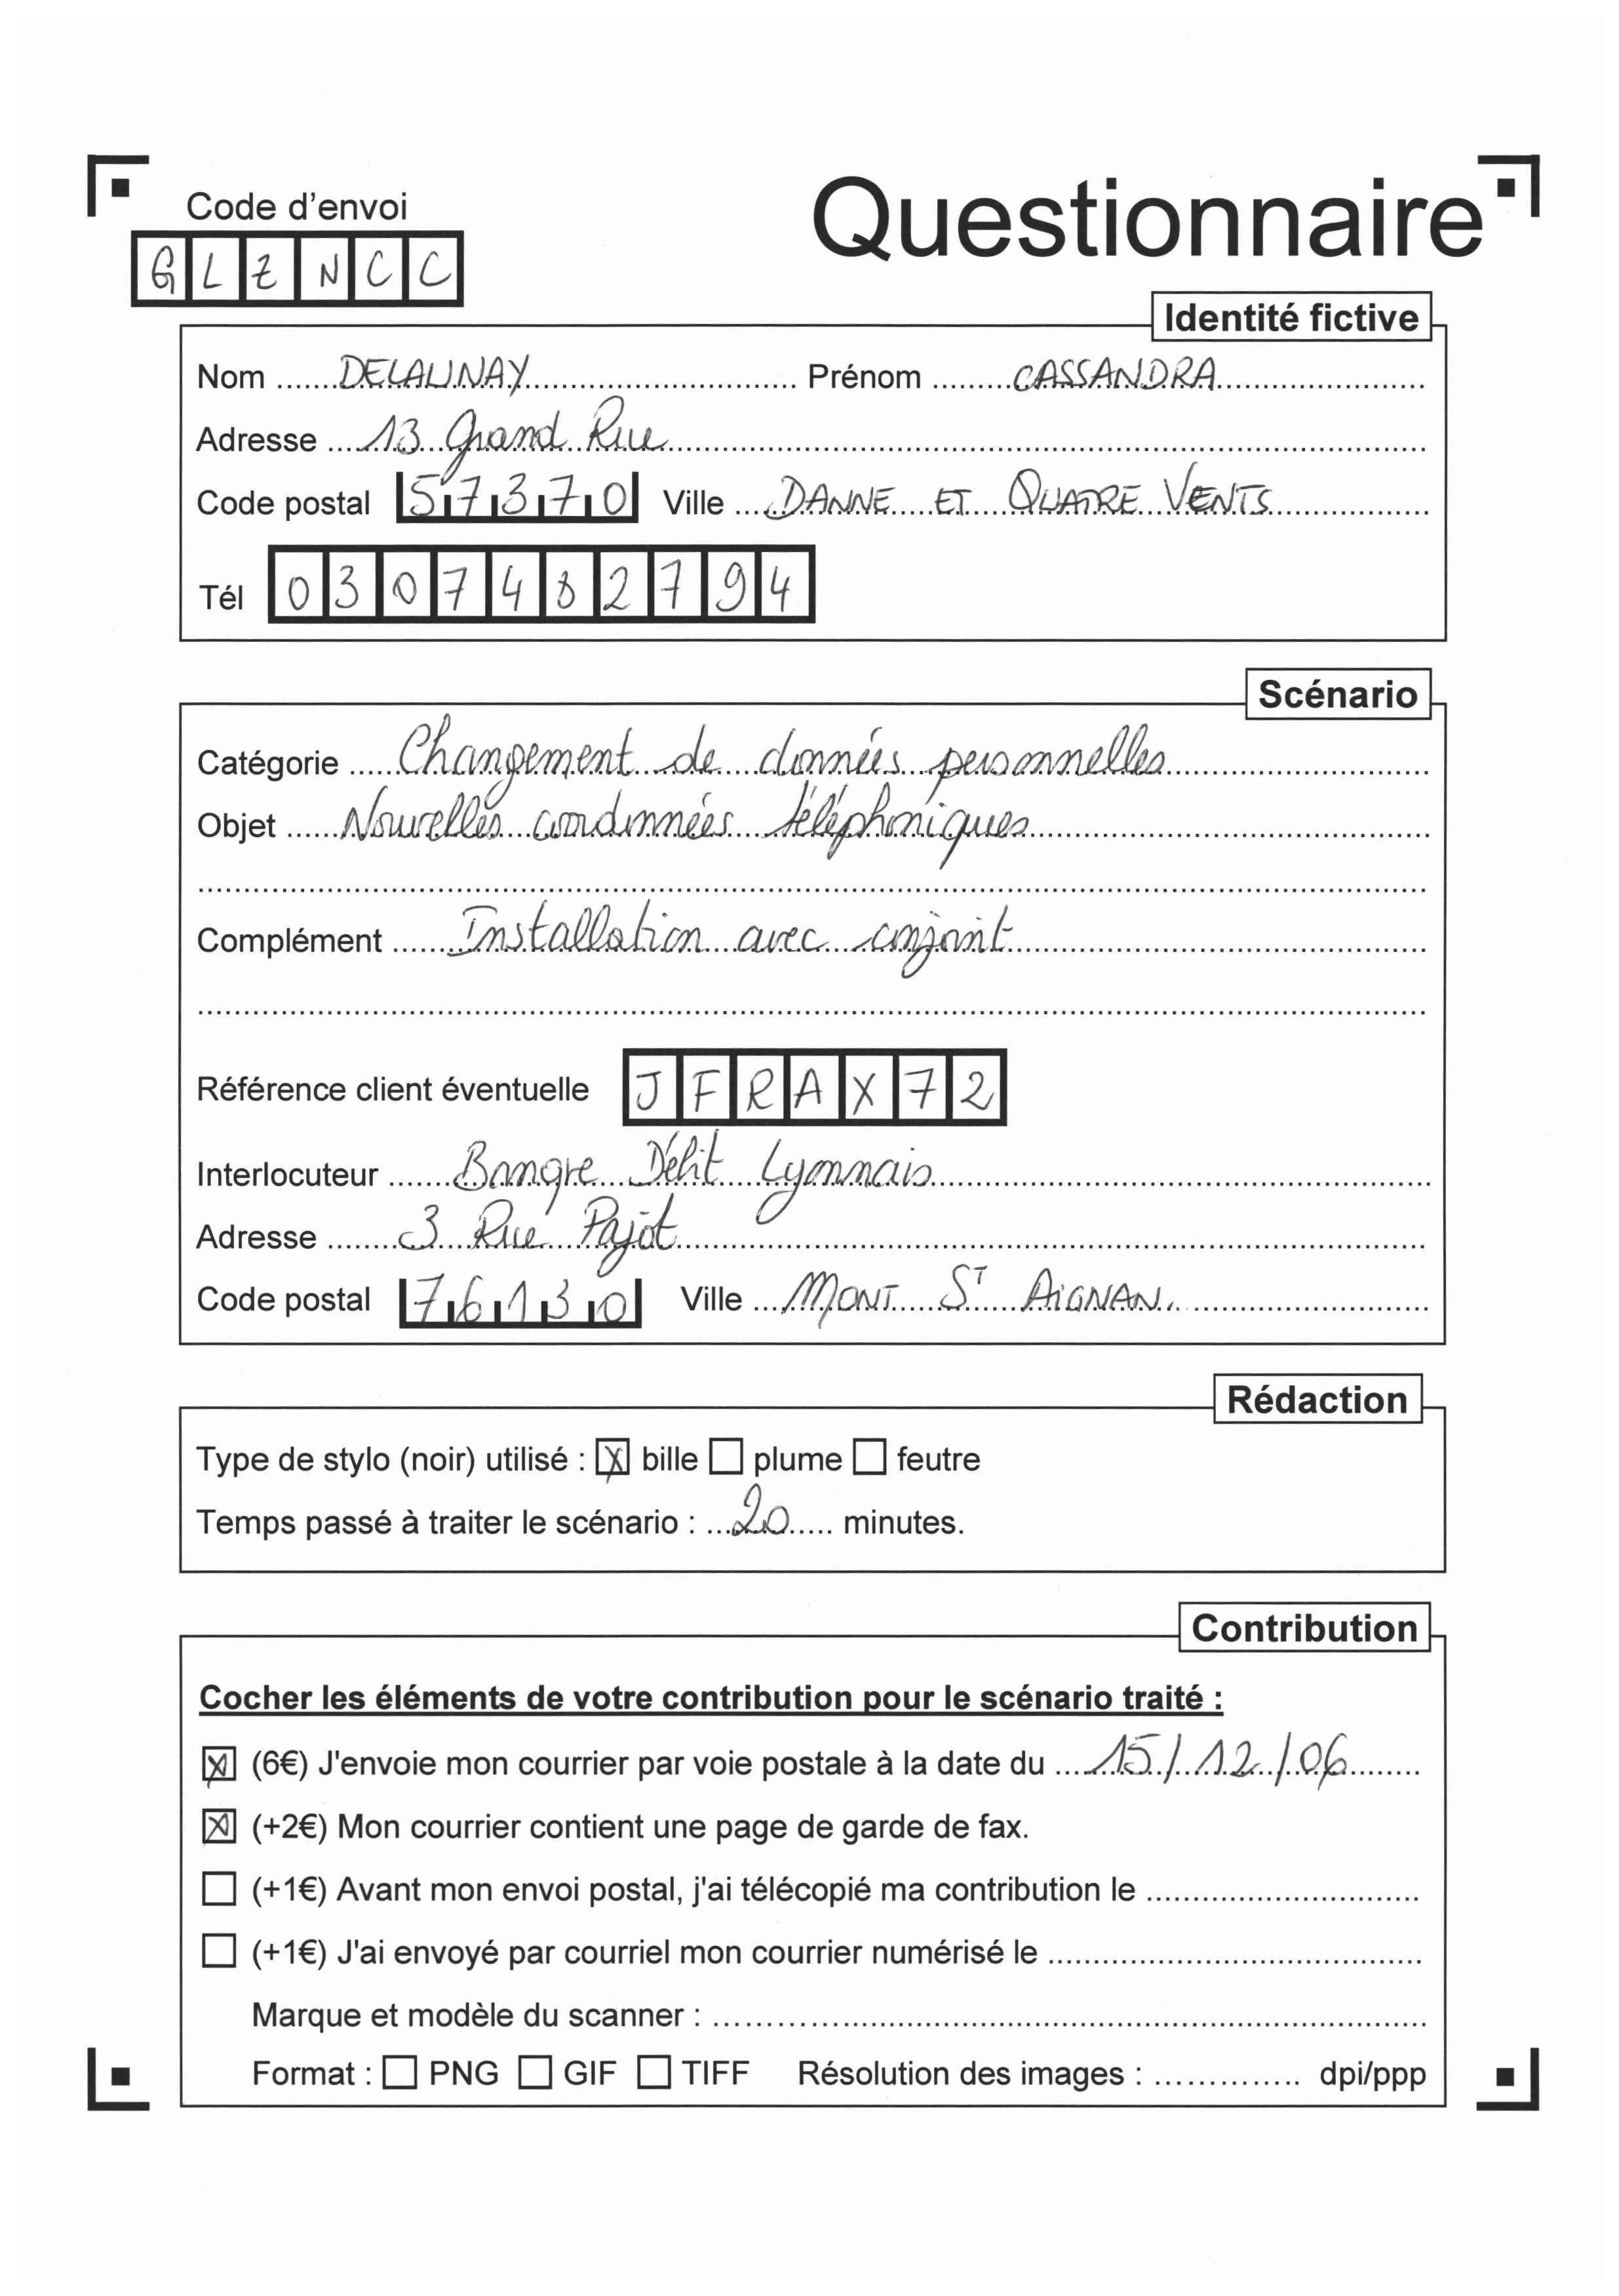 Code d'envoi
Questionnaire
GLZNCC
Identité fictive
Nom DELAUNAY Prénom CASSANDRA
Adresse 13 Grand Rue
Code postal 57370 Ville DANNE ET QUATRE VENTS
Tél 0307482794
Scénario
Catégorie Changement de données personnelles
Objet Nouvelles coordonnées téléphoniques
Complément Installation avec conjoint
Référence client éventuelle JFRAX72
Interlocuteur Banqre Débit Lyonnais
Adresse 3 Rue Pajot
Code postal 76130 Ville MONT ST AIGNAN.
Rédaction
Type de stylo (noir) utilisé : ☒ bille ☐ plume ☐ feutre
Temps passé à traiter le scénario : 20 minutes.
Contribution
Cocher les éléments de votre contribution pour le scénario traité :
☒ (6€) J'envoie mon courrier par voie postale à la date du 15/12/06
☒ (+2€) Mon courrier contient une page de garde de fax.
☐ (+1€) Avant mon envoi postal, j'ai télécopié ma contribution le
☐ (+1€) J'ai envoyé par courriel mon courrier numérisé le
Marque et modèle du scanner :
Format : ☐ PNG ☐ GIF ☐ TIFF Résolution des images : dpi/ppp